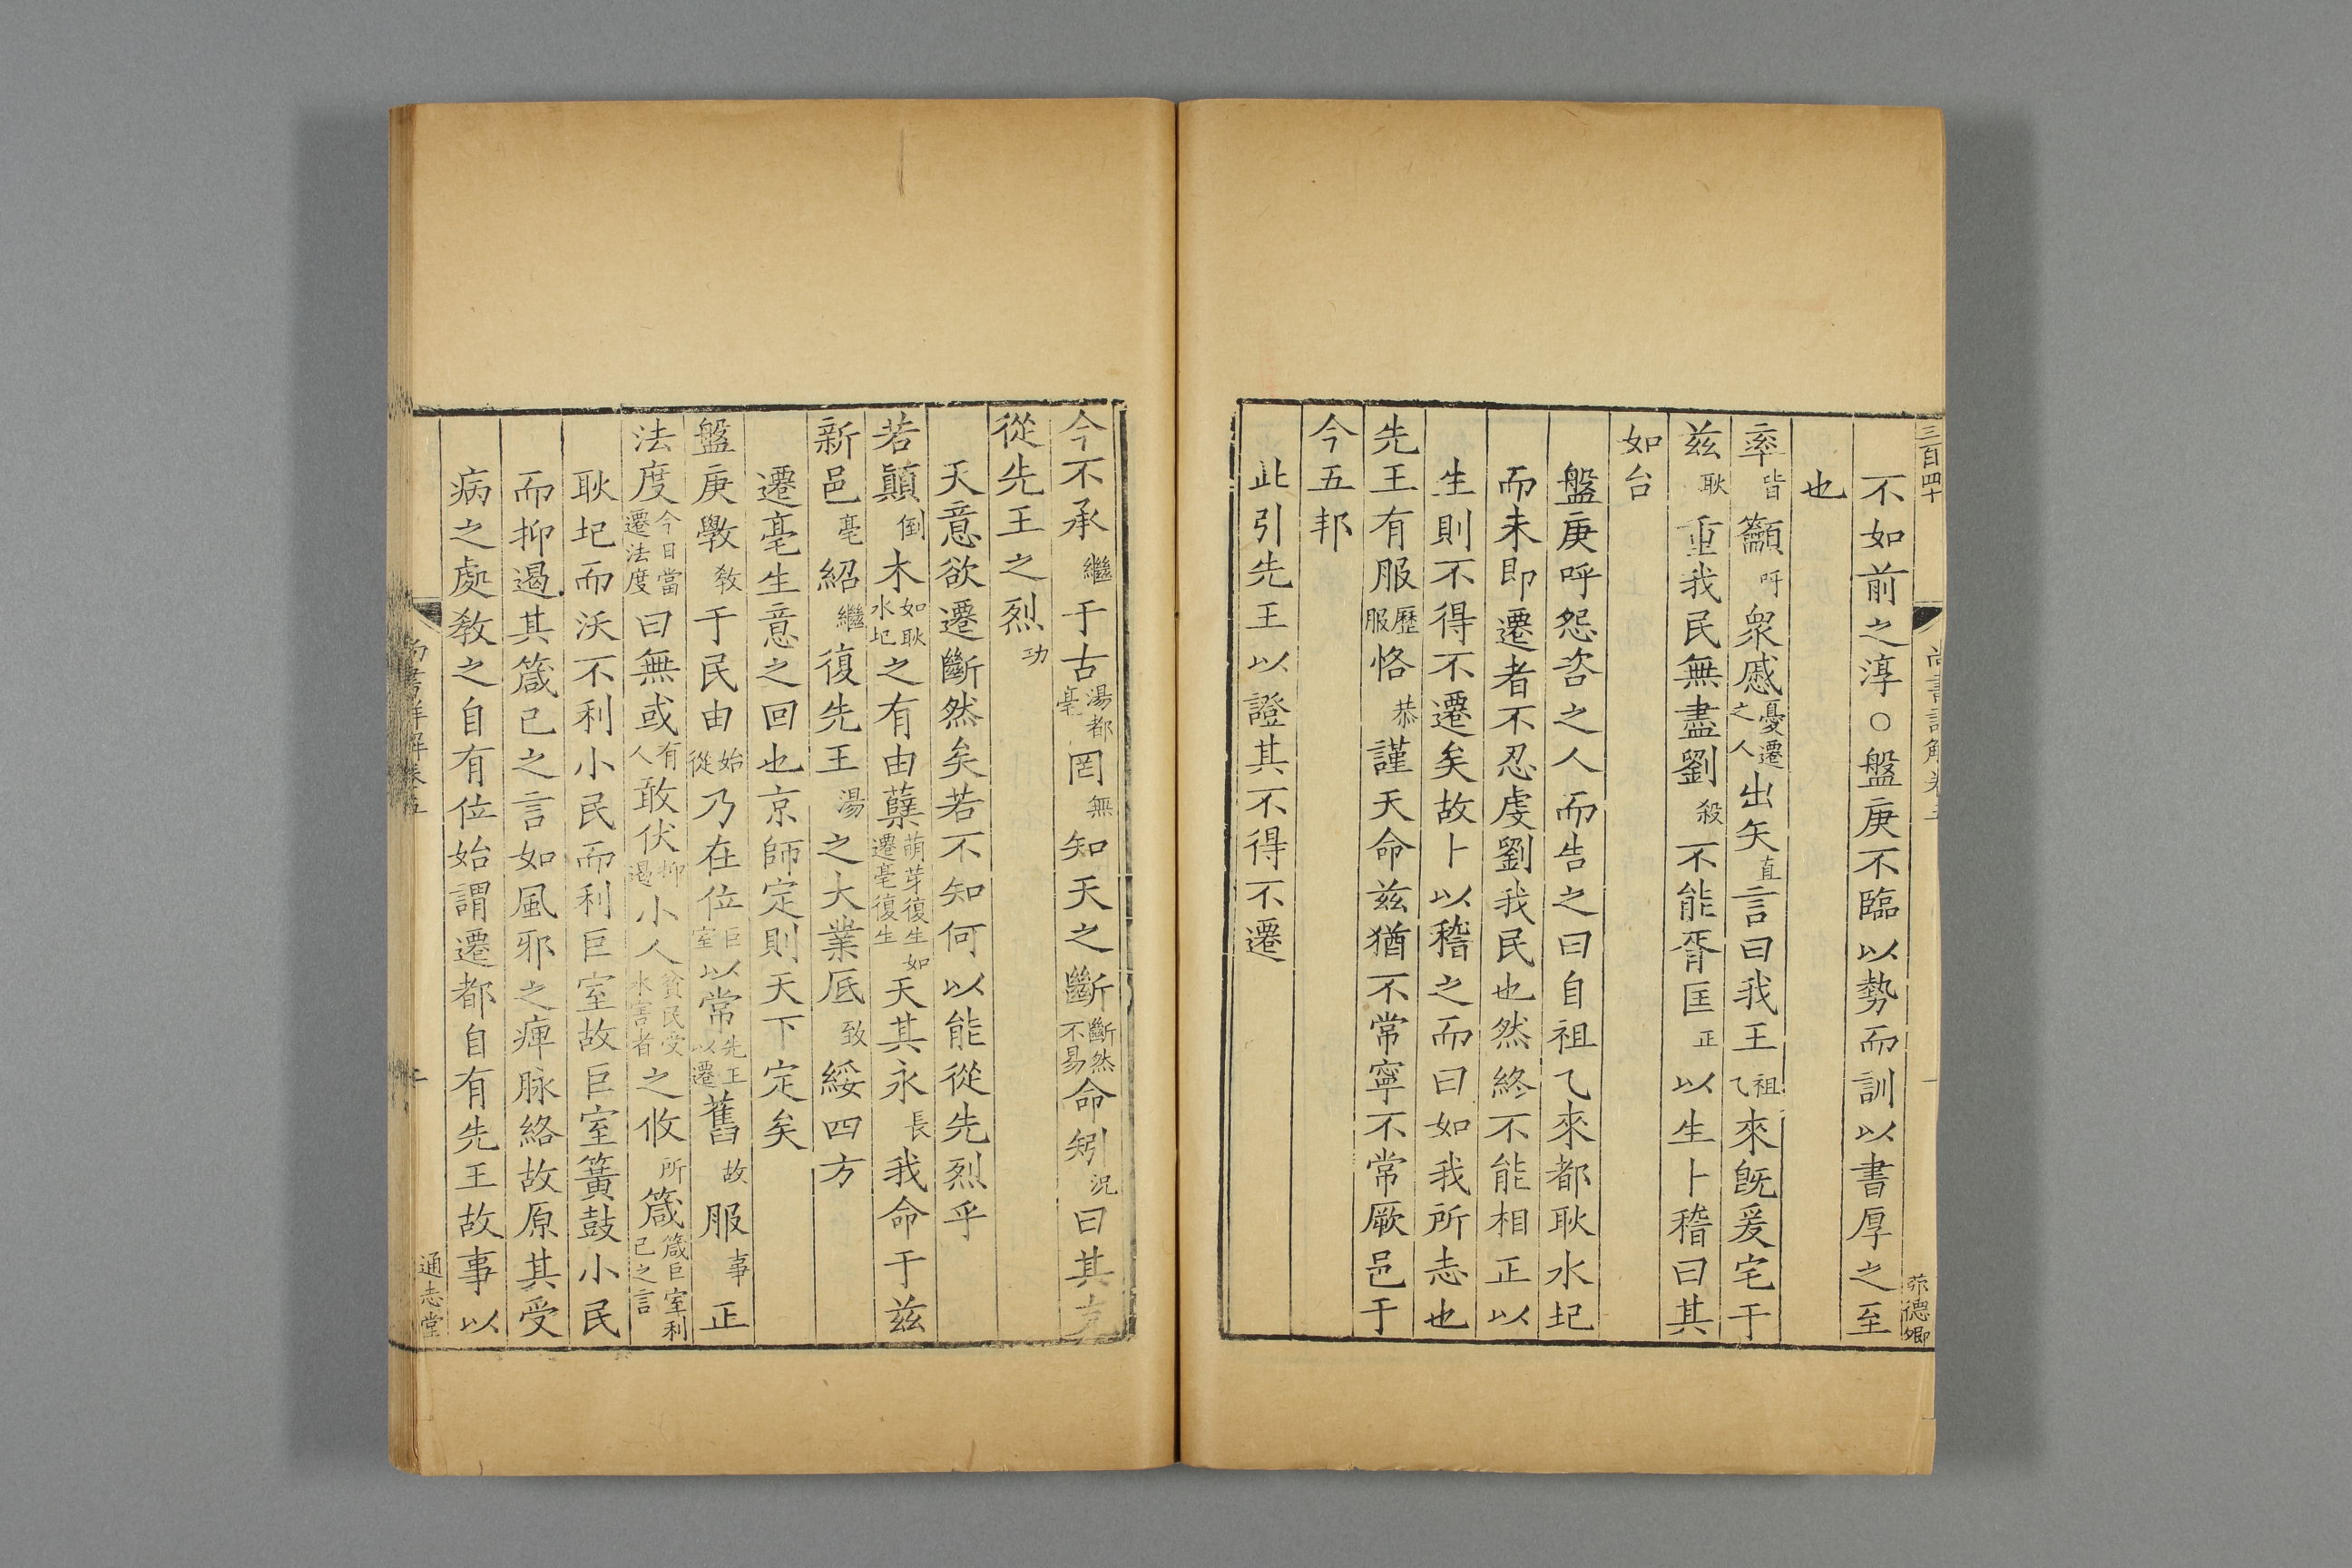 三百四十
尚書詳解卷五
弥德卿
不如前之淳○盤庚不臨以勢而訓以書厚之至
也
率皆籲呼衆慼憂遷之人出矢直言曰我王祖乙來旣爰宅于
兹耿重我民無盡劉殺不能胥匡正以生卜稽曰其
如台
盤庚呼怨咨之人而告之曰自祖乙來都耿水圮
而未即遷者不忍虔劉我民也然終不能相正以
生則不得不遷矣故卜以稽之而曰如我所志也
先王有服歷服恪恭謹天命兹猶不常寧不常厥邑于
今五邦
此引先王以證其不得不遷
今不承繼于古湯都亳罔無知天之斷斷然不易命矧況曰其克
從先王之烈功
天意欲遷斷然矣若不知何以能從先烈乎
若顛倒木如耿水圮之有由蘖萌芽復生如遷亳復生天其永長我命于兹
新邑亳紹繼復先王湯之大業厎致綏四方
遷亳生意之回也京師定則天下定矣
盤庚斆教于民由始從乃在位巨室以常先王以遷舊故服事正
法度今日當遷法度曰無或有人敢伏抑遏小人貧民受水害者之攸所箴箴巨室利己之言
耿圮而沃不利小民而利巨室故巨室簧鼓小民
而抑遏其箴己之言如風邪之痺脉絡故原其受
病之處教之自有位始謂遷都自有先王故事以
尚書詳解卷五
通志堂